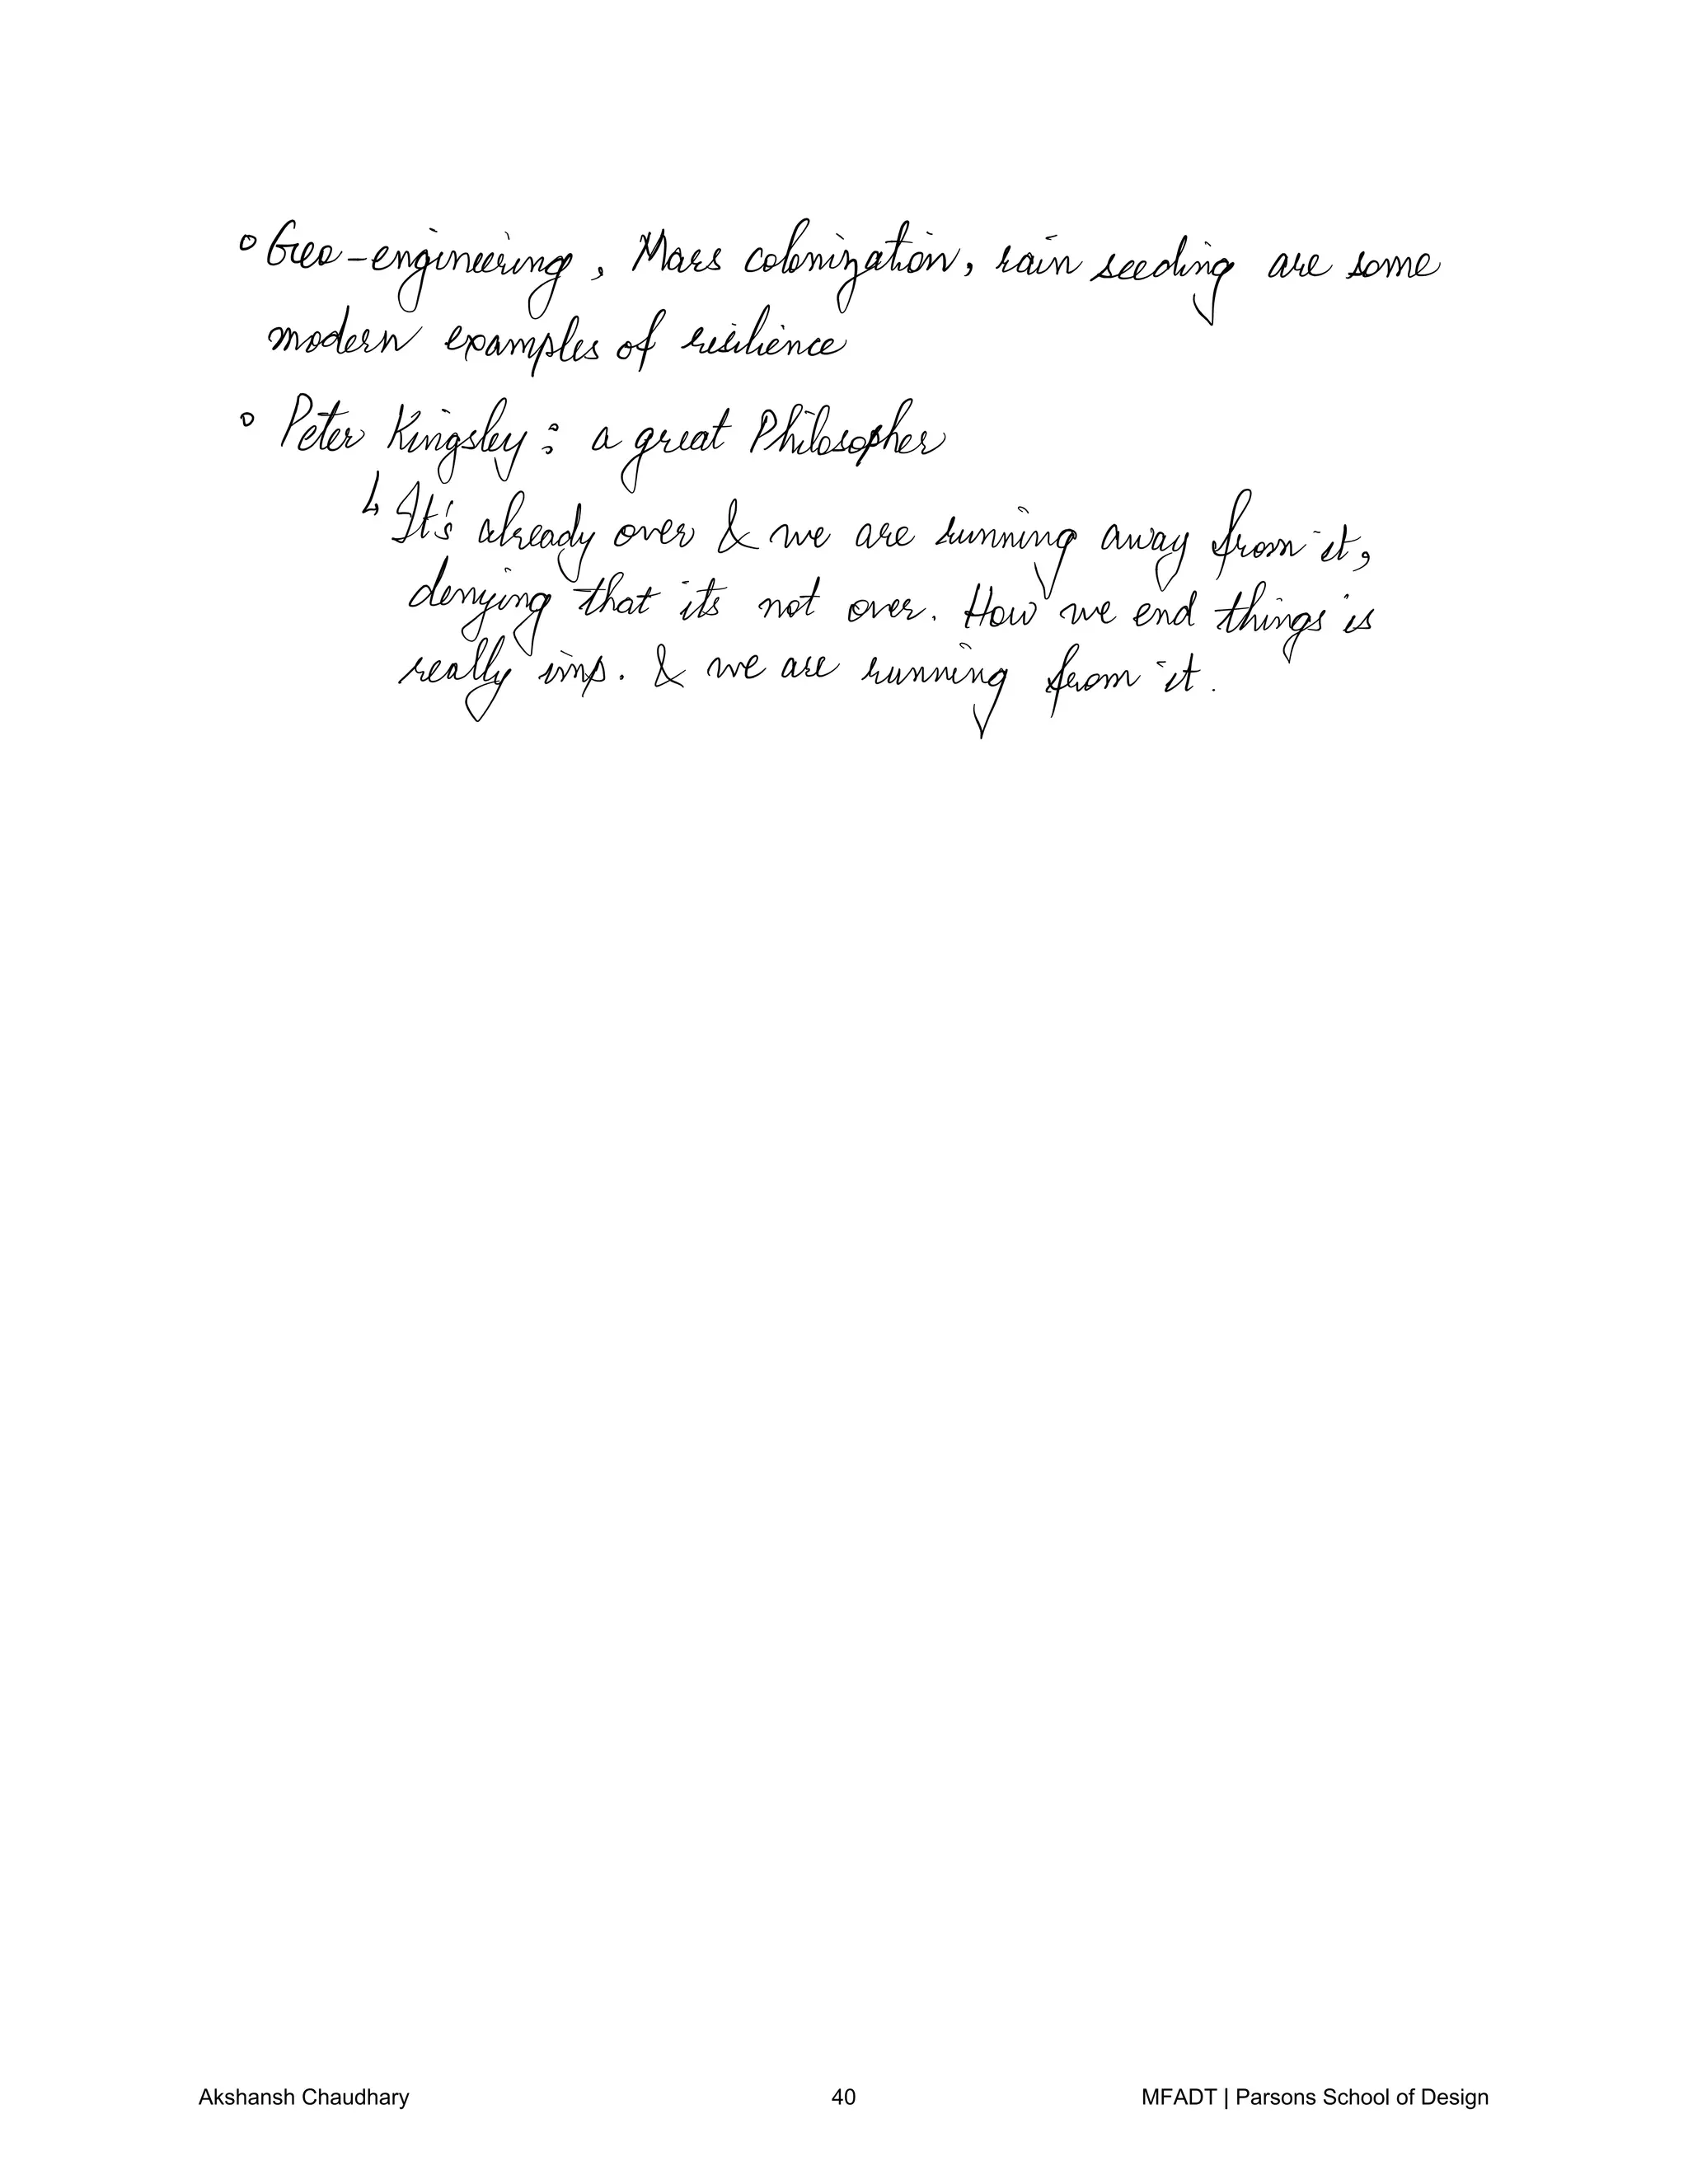 ° Geo-engineering, Mars colonization, rain seeding are some
modern examples of resilience
° Peter Kingsley: a great Philosopher
↳ It's already over & we are running away from it,
denying that its not over. How we end things is
really imp. & we are running from it.
Akshansh Chaudhary 40 MFADT | Parsons School of Design